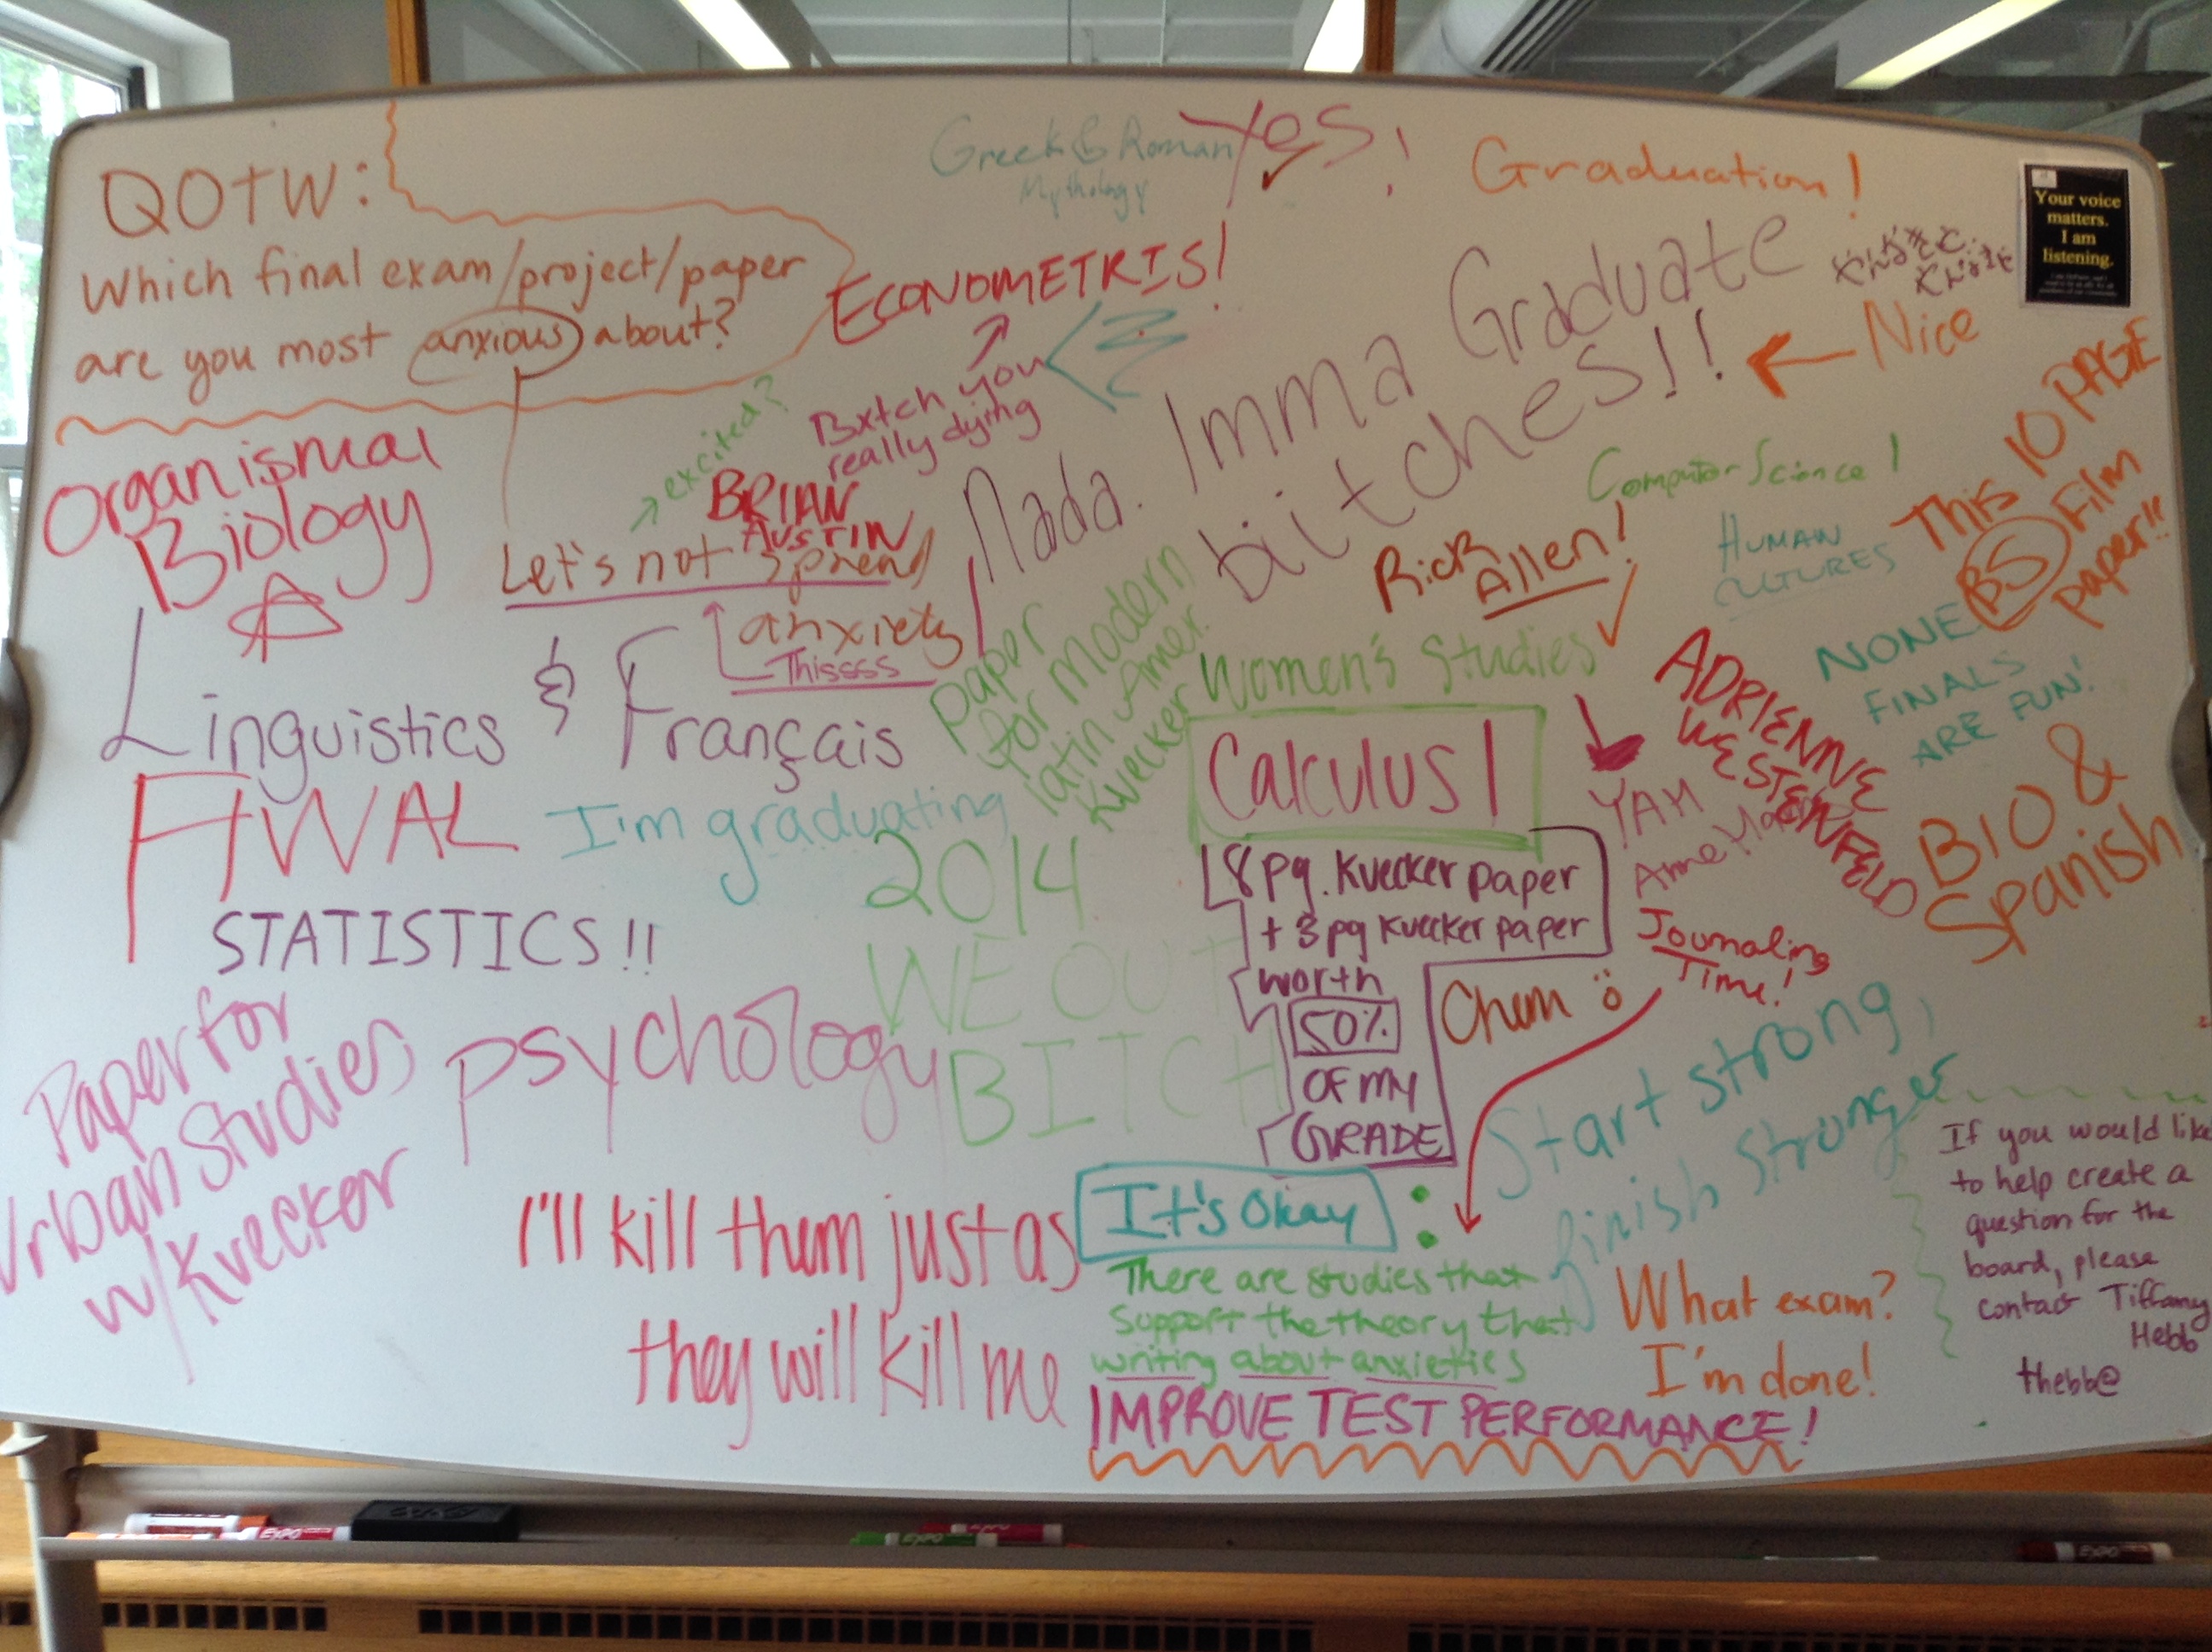 QOTW:
Which final exam/project/paper
are you most anxious about?
Greek & Roman
Mythology
Yes!
Graduation!
Your voice
matters.
I am
listening.
ECONOMETRIS!
Bxtch you
really dying
excited?
BRIAN
AUSTIN
Let's not spend
anxiety
Thissss
Nada. Imma Graduate
bitches!!
Nice
Computer Science!
Rick
Allen!
HUMAN
CULTURES
This 10 PAGE
BS Film
paper!!
NONE
FINALS
ARE FUN!
Organismal
Biology
Linguistics & Français
paper
for modern
latin Amer.
Kuecker
Women's Studies
ADRIENNE
WESTENFELD
Calculus 1
YAM
BIO &
Spanish
FINAL
I'm graduating
2014
WE OUT
BITCH
STATISTICS!!
8 pg. Kuecker paper
+ 3 pg Kuecker paper
worth
50%
OF MY
GRADE
Journaling
Time!
Chem
Paper for
Urban Studies
w/ Kuecker
psychology
Start strong,
finish stronger
I'll kill them just as
they will kill me
It's Okay
There are studies that
support the theory that
writing about anxieties
IMPROVE TEST PERFORMANCE!
What exam?
I'm done!
If you would like
to help create a
question for the
board, please
contact Tiffany
Hebb
thebb@
EXPO
EXPO
EXPO